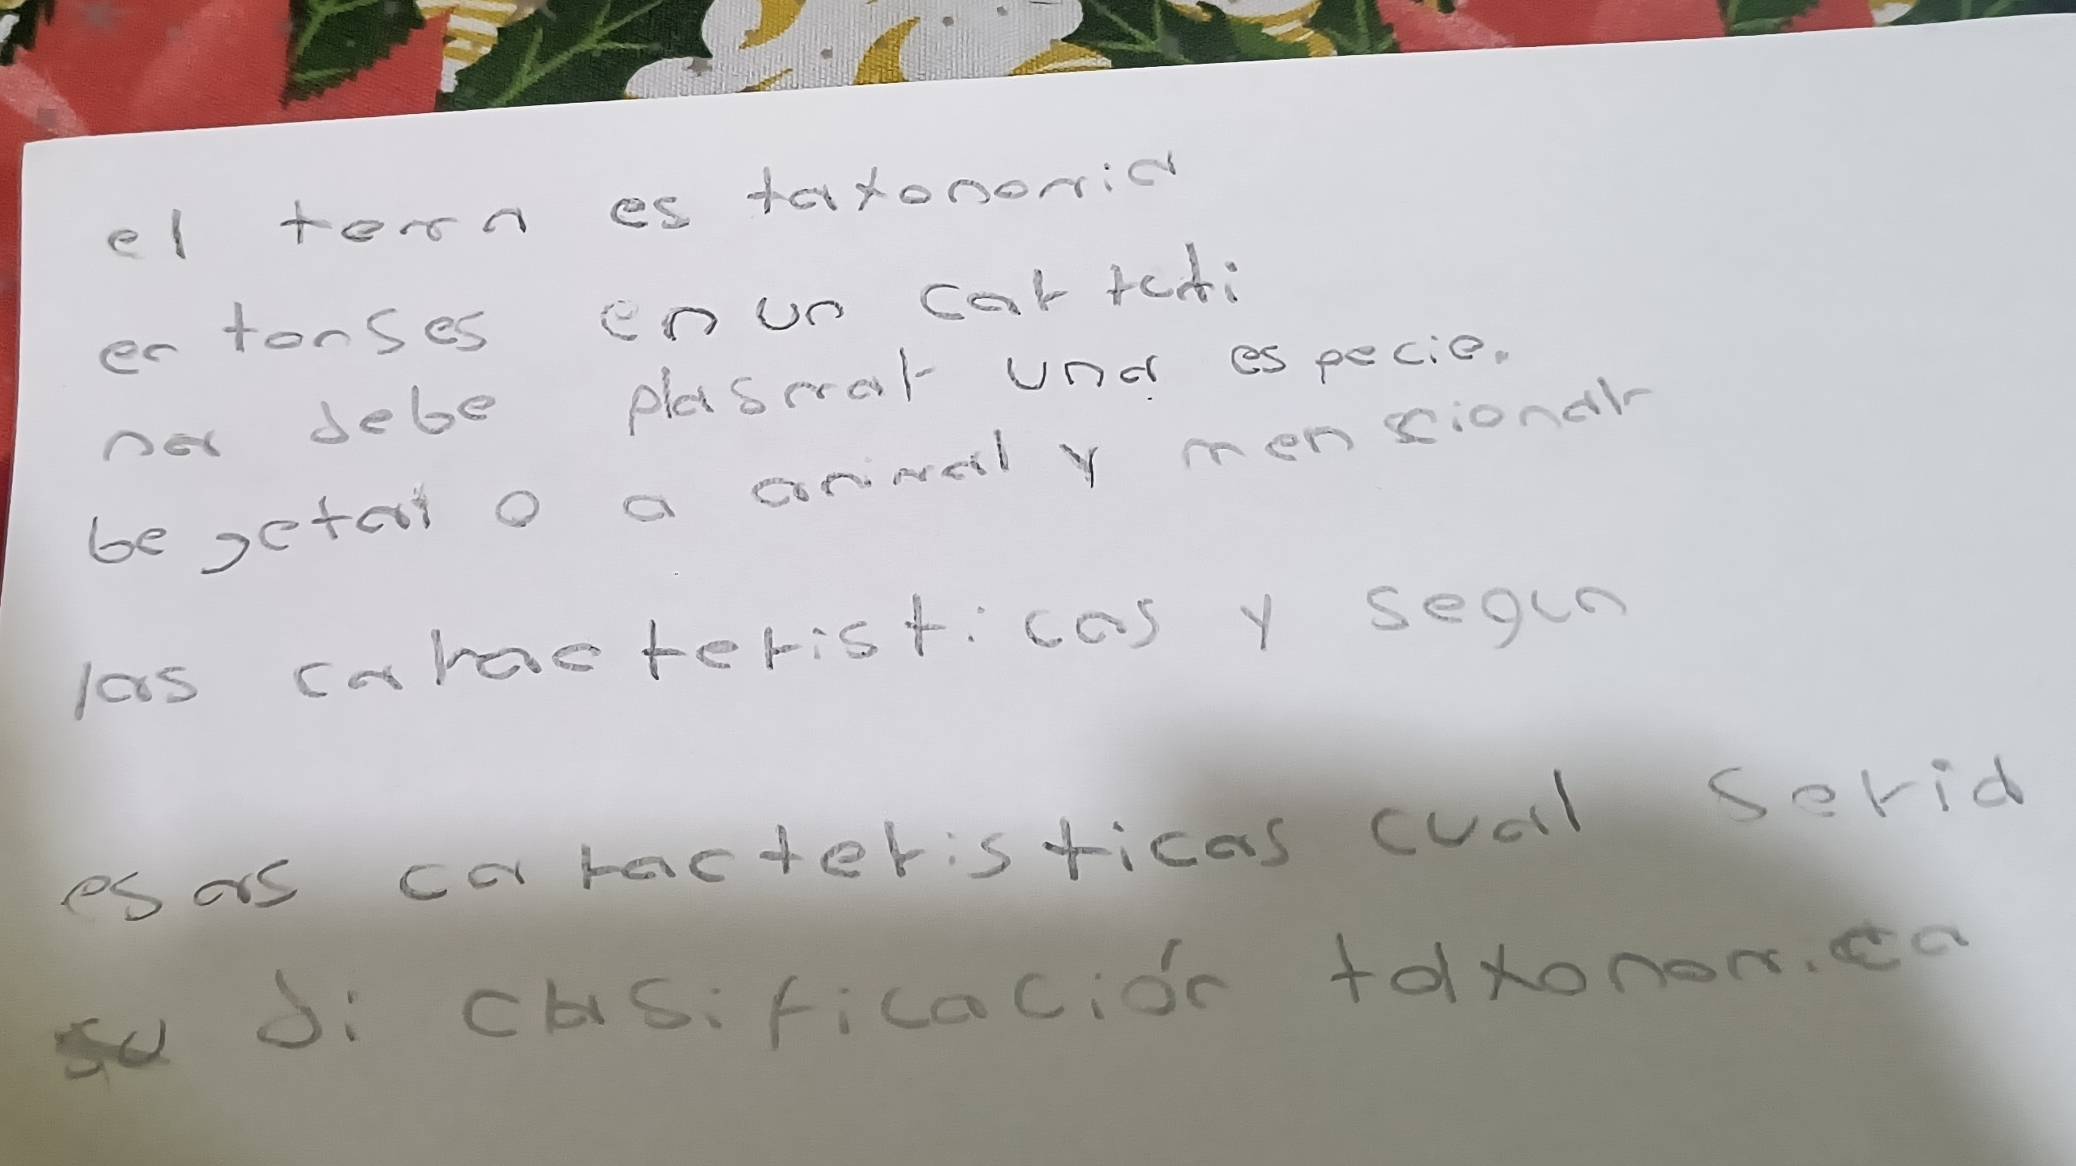 el tema es taxonomia
entonses en un cartuli
na debe plasmar una especie.
begetal o a animal y mensionar
las caracteristicas y segun
esas caracteristicas cual seria
su di clasificación taxonomica